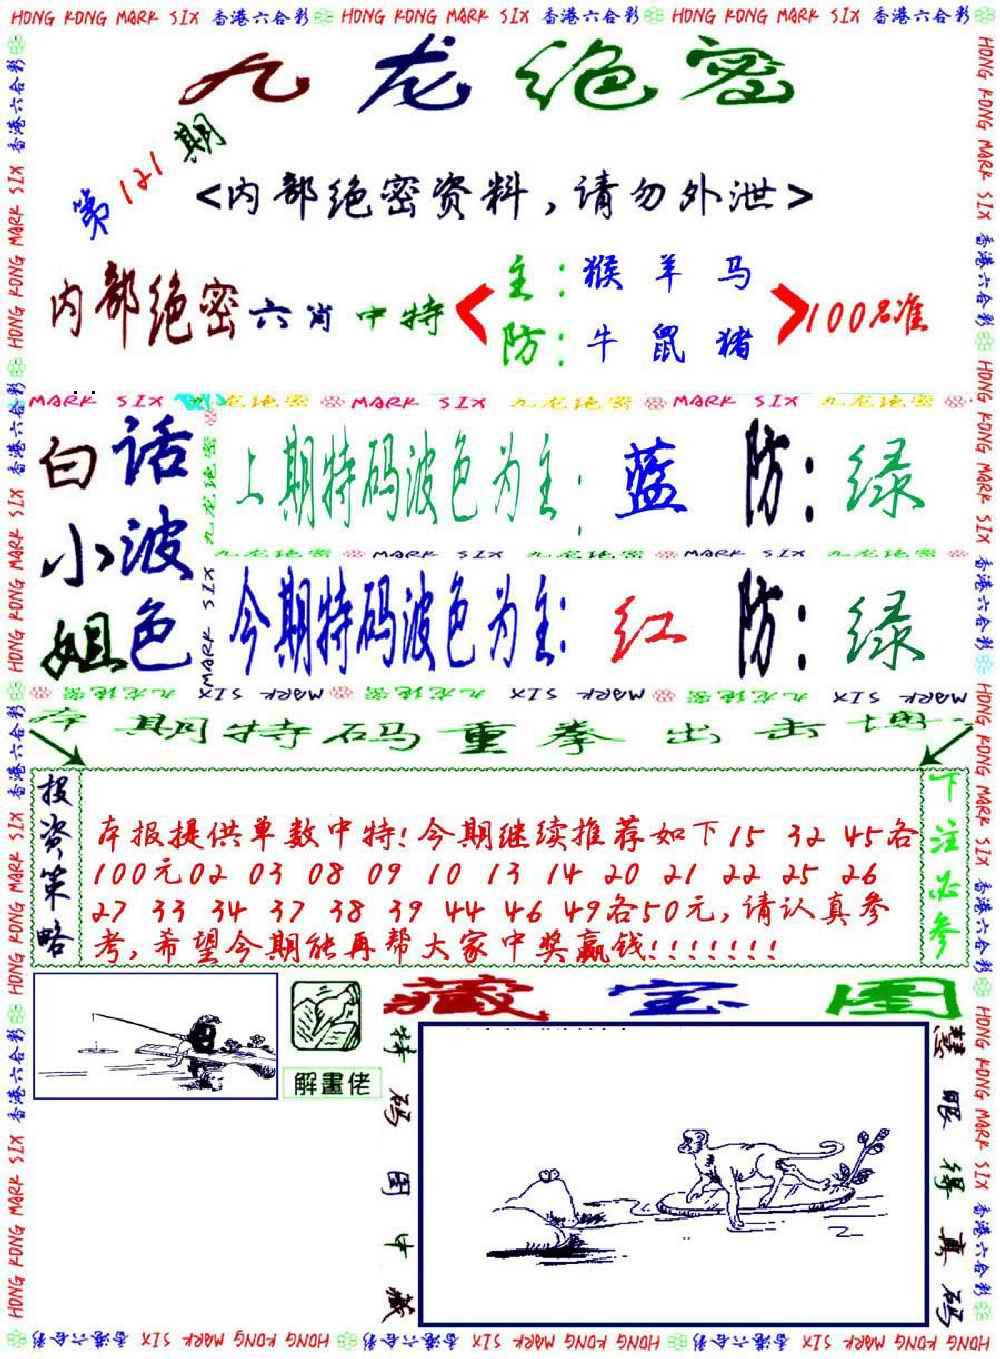 HONG KONG MARK SIX 香港六合彩 HONG KONG MARK SIX 香港六合彩 HONG KONG MARK SIX 香港六合彩
九龙绝密
第121期
<内部绝密资料,请勿外泄>
内部绝密六肖中特
主:猴 羊 马
防:牛 鼠 猪
100%准
MARK SIX 九龙绝密 MARK SIX 九龙绝密 MARK SIX 九龙绝密
白小姐
话波色
上期特码波色为主:蓝 防:绿
九龙绝密 MARK SIX 九龙绝密 MARK SIX 九龙绝密
今期特码波色为主:红 防:绿
九龙绝密 MARK SIX 九龙绝密 MARK SIX 九龙绝密 MARK SIX
本期特码重拳出击
投资策略
本报提供单数中特!今期继续推荐如下15 32 45各
100元02 03 08 09 10 13 14 20 21 22 25 26
27 33 34 37 38 39 44 46 49各50元,请认真参
考,希望今期能再帮大家中奖赢钱!!!!!!!
下注必参
解畫佬
藏宝图
特码图中藏
慧眼得真码
HONG KONG MARK SIX 香港六合彩 HONG KONG MARK SIX 香港六合彩 HONG KONG MARK SIX 香港六合彩